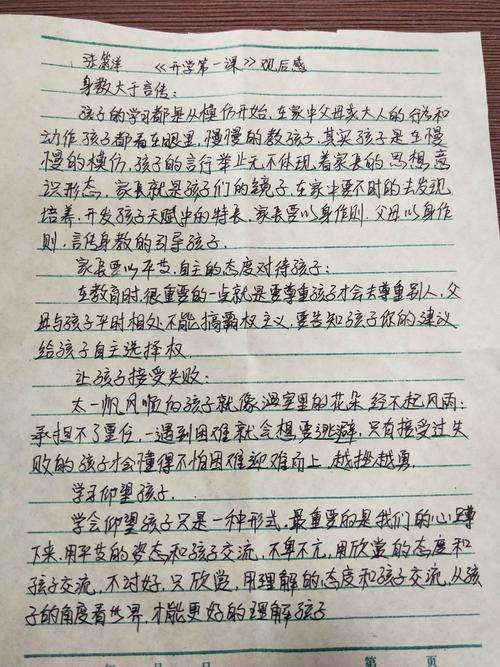 张 洋 《开学第一课》观后感
身教大于言传:
孩子的学习都是从模仿开始,在家中父母亲大人的行为和
动作,孩子都看在眼里,慢慢的教孩子,其实孩子是在慢
慢的模仿,孩子的言行举止无不体现着家长的思想,意
识形态,家长就是孩子们的镜子,在家中要不时的去发现
培养,开发孩子天赋中的特长,家长要以身作则,父母以身作
则,言传身教的引导孩子.
家长要以平等,自主的态度对待孩子:
在教育时,很重要的一点就是要尊重孩子才会去尊重别人,父
母与孩子平时相处不能搞霸权主义,要告知孩子你的建议
给孩子自主选择权.
让孩子接受失败:
太一帆风顺的孩子就像温室里的花朵 经不起风雨;
承担不了重任,一遇到困难就会想要逃避,只有接受过失
败的孩子才会懂得不怕困难迎难而上,越挫越勇.
学习仰望孩子.
学会仰望孩子只是一种形式,最重要的是我们的心蹲
下来,用平等的姿态和孩子交流,不卑不亢,用欣赏的态度和
孩子交流,不讨好,只欣赏,用理解的态度和孩子交流,从孩
子的角度看世界,才能更好的理解孩子
年 月 日 第 页